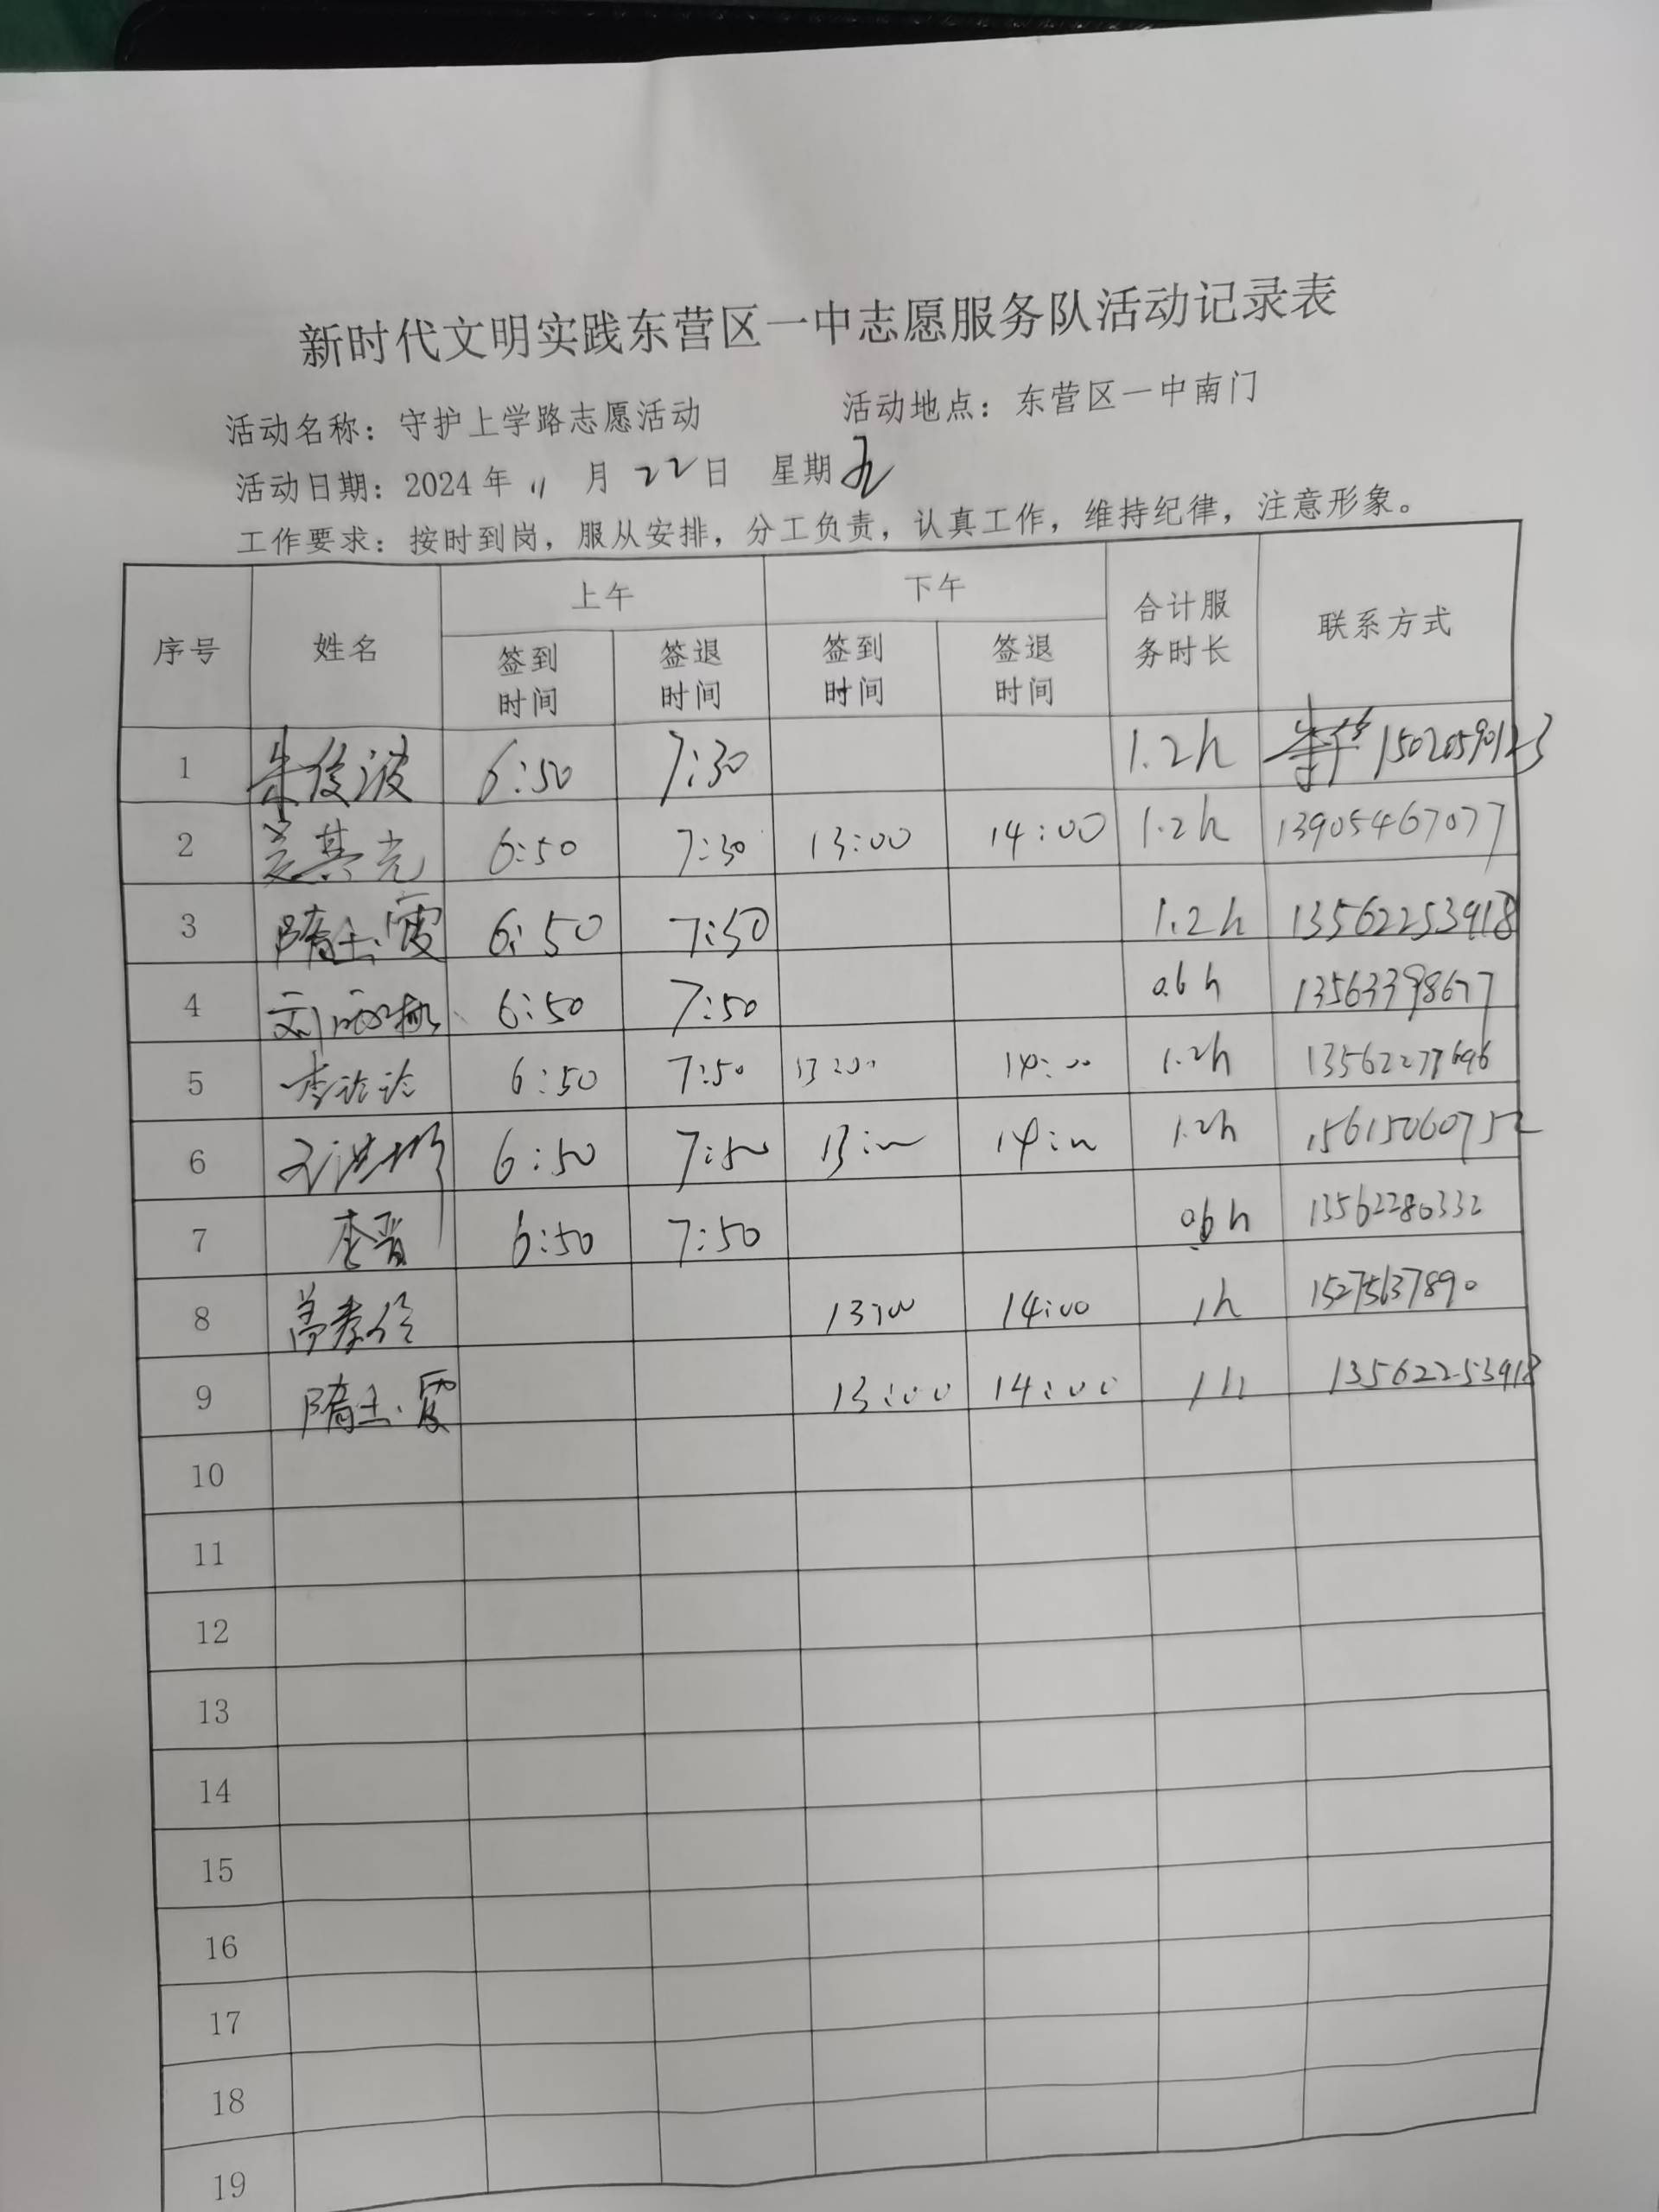 新时代文明实践东营区一中志愿服务队活动记录表
活动名称：守护上学路志愿活动 活动地点：东营区一中南门
活动日期：2024年 11 月 22日 星期五
工作要求：按时到岗，服从安排，分工负责，认真工作，维持纪律，注意形象。
序号 姓名 上午 下午 合计服务时长 联系方式
签到时间 签退时间 签到时间 签退时间
1 朱俊波 6:50 7:30 1.2h
2 其光 6:50 7:30 13:00 14:00 1.2h 13905467077
3 隋玉霞 6:50 7:50 1.2h 13562253918
4 刘 6:50 7:50 0.6h 13563398677
5 李 6:50 7:50 13:00 14:00 1.2h
6 6:50 7:50 13:00 14:00 1.2h 15615060752
7 李晋 6:50 7:50 0.6h 13562280332
8 13:00 14:00 1h 15275637890
9 隋玉霞 13:00 14:00 1h 13562253918
10
11
12
13
14
15
16
17
18
19